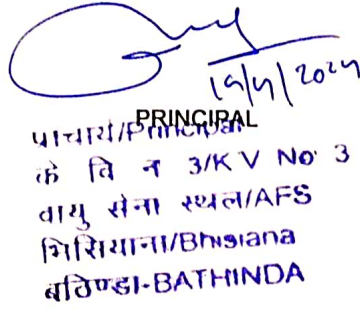 19/4/2024
PRINCIPAL
प्राचार्य/Principal
के वि न 3/K V No 3
वायु सेना स्थल/AFS
भिसियाना/Bhisiana
बठिण्डा-BATHINDA